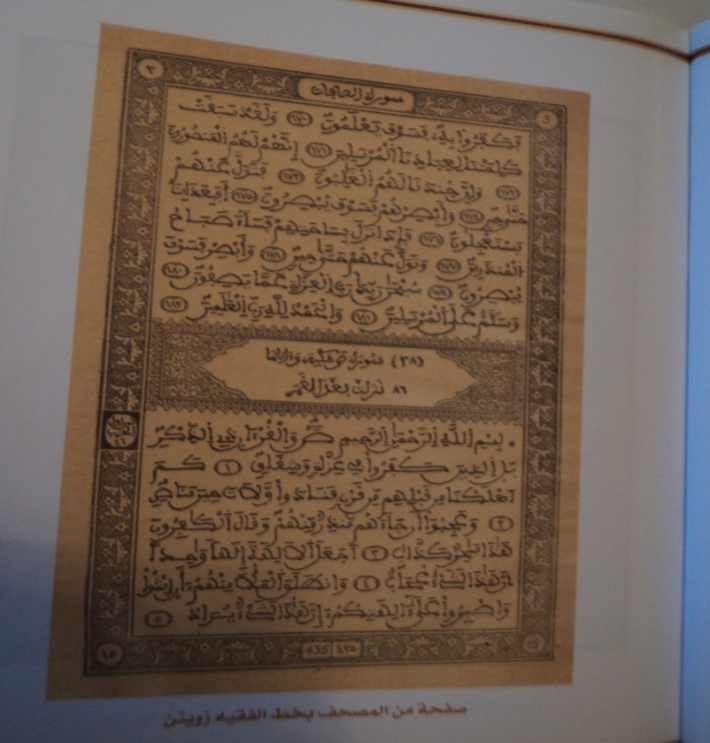 سورة الصافات
فكفروا به فسوف يعلمون (١٧٠) ولقد سبقت
كلمتنا لعبادنا المرسلين (١٧١) إنهم لهم المنصورون
(١٧٢) وإن جندنا لهم الغلبون (١٧٣) فتول عنهم
حتى حين (١٧٤) وأبصرهم فسوف يبصرون (١٧٥) أفبعذابنا
يستعجلون (١٧٦) فإذا نزل بساحتهم فساء صباح
المنذرين (١٧٧) وتول عنهم حتى حين (١٧٨) وأبصر فسوف
يبصرون (١٧٩) سبحن ربك رب العزة عما يصفون (١٨٠)
وسلم على المرسلين (١٨١) والحمد لله رب العلمين (١٨٢)
(٣٨) سورة ص مكية وءاياتها
٨٦ نزلت بعد القمر
بسم الله الرحمن الرحيم ص والقرءان ذي الذكر
بل الذين كفروا في عزة وشقاق (١) كم
أهلكنا من قبلهم من قرن فنادوا ولات حين مناص
(٢) وعجبوا أن جاءهم منذر منهم وقال الكفرون
هذا سحر كذاب (٣) أجعل الالهة إلها وحدا
إن هذا لشيء عجاب (٤) وانطلق الملأ منهم أن امشوا
واصبروا على ءالهتكم إن هذا لشيء يراد (٥)
٤٣٥
صفحة من المصحف بخط الفقيه زويتن